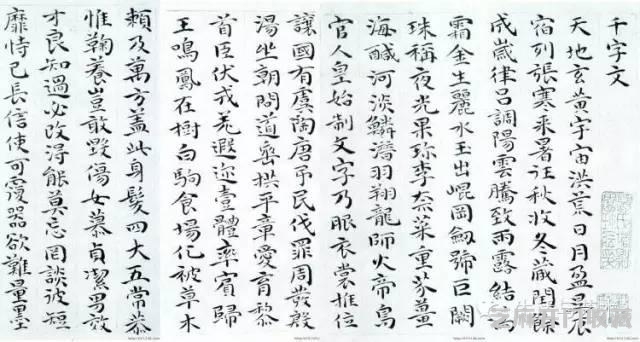 千字文
天地玄黄宇宙洪荒日月盈昃辰
宿列張寒來暑往秋收冬藏閏餘
成歲律吕調陽雲騰致雨露結為
霜金生麗水玉出崐岡劔號巨闕
珠稱夜光果珍李奈菜重芥薑
海醎河淡鱗潛羽翔龍師火帝鳥
官人皇始制文字乃服衣裳推位
讓國有虞陶唐弔民伐罪周發殷
湯坐朝問道垂拱平章愛育黎
首臣伏戎羌遐迩壹體率賓歸
王鳴鳳在樹白駒食場化被草木
賴及萬方蓋此身髮四大五常恭
惟鞠養豈敢毀傷女慕貞潔男效
才良知過必改得能莫忘罔談彼短
靡恃己長信使可覆器欲難量墨